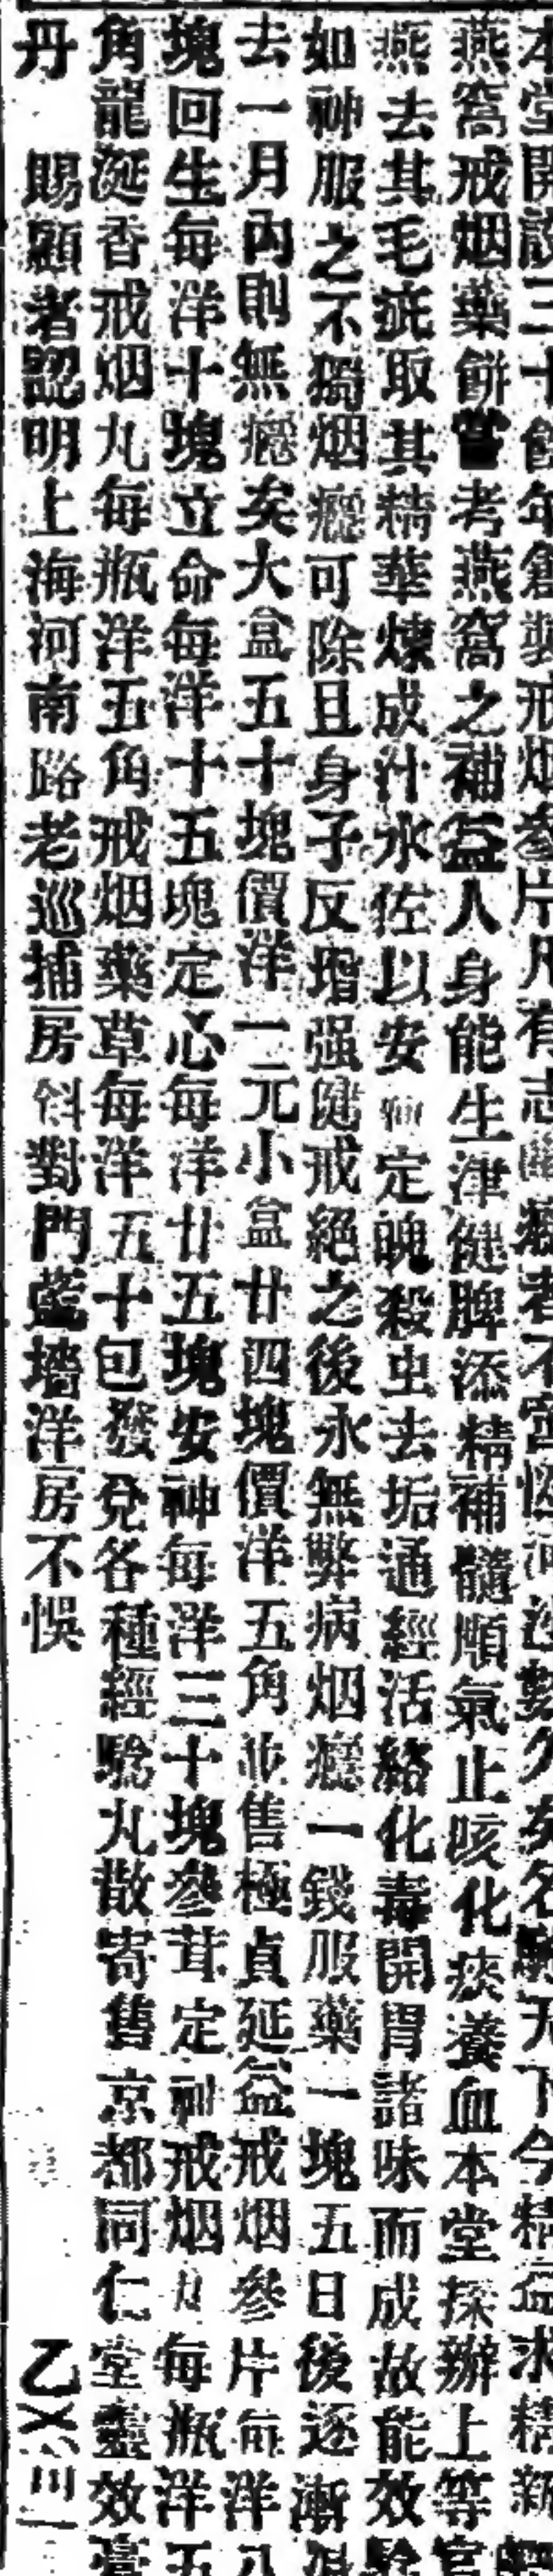 本堂開設三十餘年創製戒烟參片凡有志斷癮者不宜悞活迷數久矣名馳天下今精益求精新
燕窩戒烟藥餅嘗考燕窩之補益人身能生津健脾添精補髓順氣止咳化痰養血本堂採辦上等官
燕去其毛疵取其精華煉成汁水佐以安神定魄殺虫去垢通經活絡化毒開胃諸味而成故能效驗
如神服之不獨烟癮可除且身子反增强健戒絕之後永無弊病烟癮一錢服藥一塊五日後逐漸退
去一月內則無癮矣大盒五十塊價洋一元小盒廿四塊價洋五角並售極貞延益戒烟參片每洋八
塊回生每洋十塊立命每洋十五塊定心每洋廿五塊安神每洋三十塊參茸定神戒烟丸每瓶洋五
角龍涎香戒烟丸每瓶洋五角戒烟藥草每洋五十包發兌各種經驗丸散寄售京都同仁堂靈效
丹　賜顧者認明上海河南路老巡捕房斜對門藍墻洋房不悞　乙